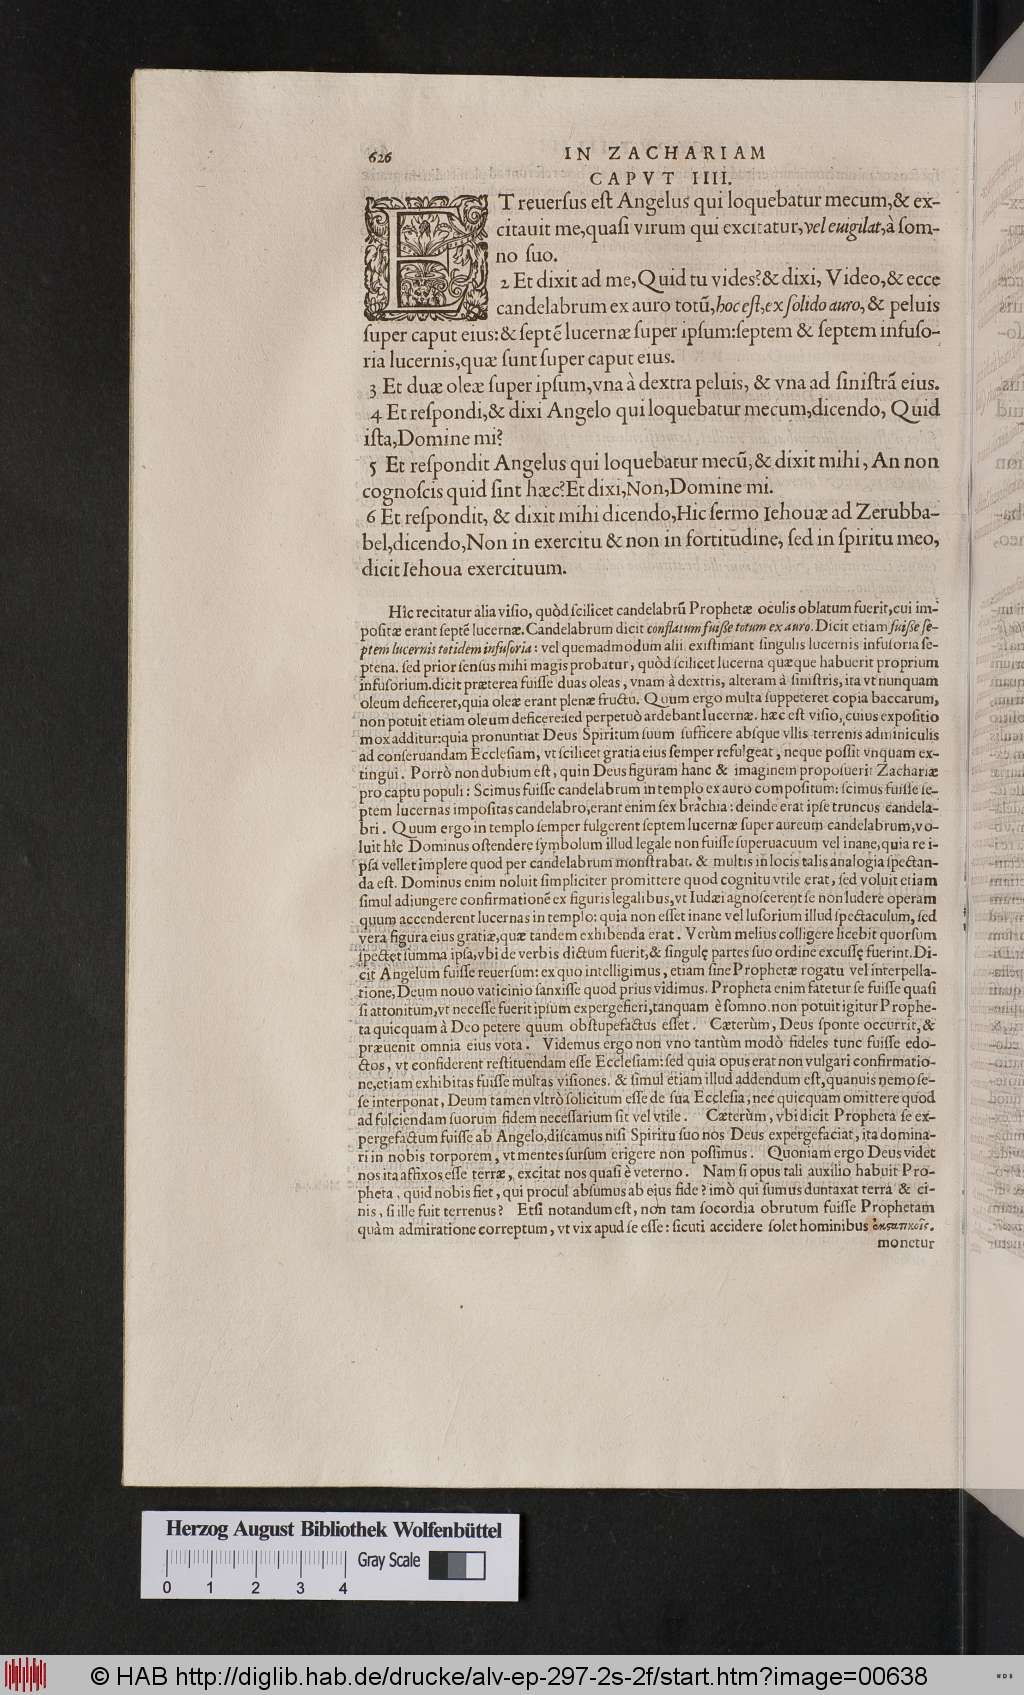 626
IN ZACHARIAM
CAPVT IIII.
ET reuerſus eſt Angelus qui loquebatur mecum,& ex-
citauit me,quaſi virum qui excitatur,vel euigilat,à ſom-
no ſuo.
2 Et dixit ad me,Quid tu vides?& dixi, Video,& ecce
candelabrum ex auro totũ,hoc eſt,ex ſolido auro,& peluis
ſuper caput eius:& ſeptẽ lucernæ ſuper ipſum:ſeptem & ſeptem infuſo-
ria lucernis,quæ ſunt ſuper caput eius.
3 Et duæ oleæ ſuper ipſum,vna à dextra peluis, & vna ad ſiniſtrã eius.
4 Et reſpondi,& dixi Angelo qui loquebatur mecum,dicendo, Quid
iſta,Domine mi?
5 Et reſpondit Angelus qui loquebatur mecũ,& dixit mihi, An non
cognoſcis quid ſint hæc?Et dixi,Non,Domine mi.
6 Et reſpondit, & dixit mihi dicendo,Hic ſermo Iehouæ ad Zerubba-
bel,dicendo,Non in exercitu & non in fortitudine, ſed in ſpiritu meo,
dicit Iehoua exercituum.
Hîc recitatur alia viſio, quòd ſcilicet candelabrũ Prophetæ oculis oblatum fuerit,cui im-
poſitæ erant ſeptẽ lucernæ. Candelabrum dicit conflatum fuiſſe totum ex auro. Dicit etiam fuiſſe ſe-
ptem lucernis totidem infuſoria: vel quemadmodum alii exiſtimant ſingulis lucernis infuſoria ſe-
ptena. ſed prior ſenſus mihi magis probatur, quòd ſcilicet lucerna quæque habuerit proprium
infuſorium.dicit præterea fuiſſe duas oleas, vnam à dextris, alteram à ſiniſtris, ita vt nunquam
oleum deficeret,quia oleæ erant plenæ fructu. Quum ergo multa ſuppeteret copia baccarum,
non potuit etiam oleum deficere:ſed perpetuò ardebant lucernæ. hæc eſt viſio, cuius expoſitio
mox additur:quia pronuntiat Deus Spiritum ſuum ſufficere abſque vllis terrenis adminiculis
ad conſeruandam Eccleſiam, vt ſcilicet gratia eius ſemper refulgeat, neque poſſit vnquam ex-
tingui. Porrò non dubium eſt, quin Deus figuram hanc & imaginem propoſuerit Zachariæ
pro captu populi: Scimus fuiſſe candelabrum in templo ex auro compoſitum: ſcimus fuiſſe ſe-
ptem lucernas impoſitas candelabro,erant enim ſex brachia: deinde erat ipſe truncus candela-
bri. Quum ergo in templo ſemper fulgerent ſeptem lucernæ ſuper aureum candelabrum,vo-
luit hîc Dominus oſtendere ſymbolum illud legale non fuiſſe ſuperuacuum vel inane,quia re i-
pſa vellet implere quod per candelabrum monſtrabat. & multis in locis talis analogia ſpectan-
da eſt. Dominus enim noluit ſimpliciter promittere quod cognitu vtile erat, ſed voluit etiam
ſimul adiungere confirmationẽ ex figuris legalibus,vt Iudæi agnoſcerent ſe non ludere operam
quum accenderent lucernas in templo: quia non eſſet inane vel luſorium illud ſpectaculum, ſed
vera figura eius gratiæ,quæ tandem exhibenda erat. Verùm melius colligere licebit quorſum
ſpectet ſumma ipſa,vbi de verbis dictum fuerit,& ſingulę partes ſuo ordine excuſſę fuerint.Di-
cit Angelum fuiſſe reuerſum: ex quo intelligimus, etiam ſine Prophetæ rogatu vel interpella-
tione,Deum nouo vaticinio ſanxiſſe quod prius vidimus. Propheta enim fatetur ſe fuiſſe quaſi
ſi attonitum,vt neceſſe fuerit ipſum expergefieri,tanquam è ſomno.non potuit igitur Prophe-
ta quicquam à Deo petere quum obſtupefactus eſſet. Cæterùm, Deus ſponte occurrit,&
præuenit omnia eius vota. Videmus ergo non vno tantùm modò fideles tunc fuiſſe edo-
ctos, vt confiderent reſtituendam eſſe Eccleſiam:ſed quia opus erat non vulgari confirmatio-
ne,etiam exhibitas fuiſſe multas viſiones. & ſimul etiam illud addendum eſt,quanuis nemo ſe-
ſe interponat, Deum tamen vltrò ſolicitum eſſe de ſua Eccleſia, nec quicquam omittere quod
ad fulciendam ſuorum fidem neceſſarium ſit vel vtile. Cæterùm, vbi dicit Propheta ſe ex-
pergefactum fuiſſe ab Angelo,diſcamus niſi Spiritu ſuo nos Deus expergefaciat, ita domina-
ri in nobis torporem, vt mentes ſurſum erigere non poſſimus. Quoniam ergo Deus videt
nos ita affixos eſſe terræ, excitat nos quaſi è veterno. Nam ſi opus tali auxilio habuit Pro-
pheta, quid nobis fiet, qui procul abſumus ab eius fide? imò qui ſumus duntaxat terra & ci-
nis, ſi ille fuit terrenus? Etſi notandum eſt, non tam ſocordia obrutum fuiſſe Prophetam
quàm admiratione correptum, vt vix apud ſe eſſe: ſicuti accidere ſolet hominibus ἐκστατικοῖς.
monetur
Herzog August Bibliothek Wolfenbüttel
Gray Scale
0 1 2 3 4
© HAB http://diglib.hab.de/drucke/alv-ep-297-2s-2f/start.htm?image=00638